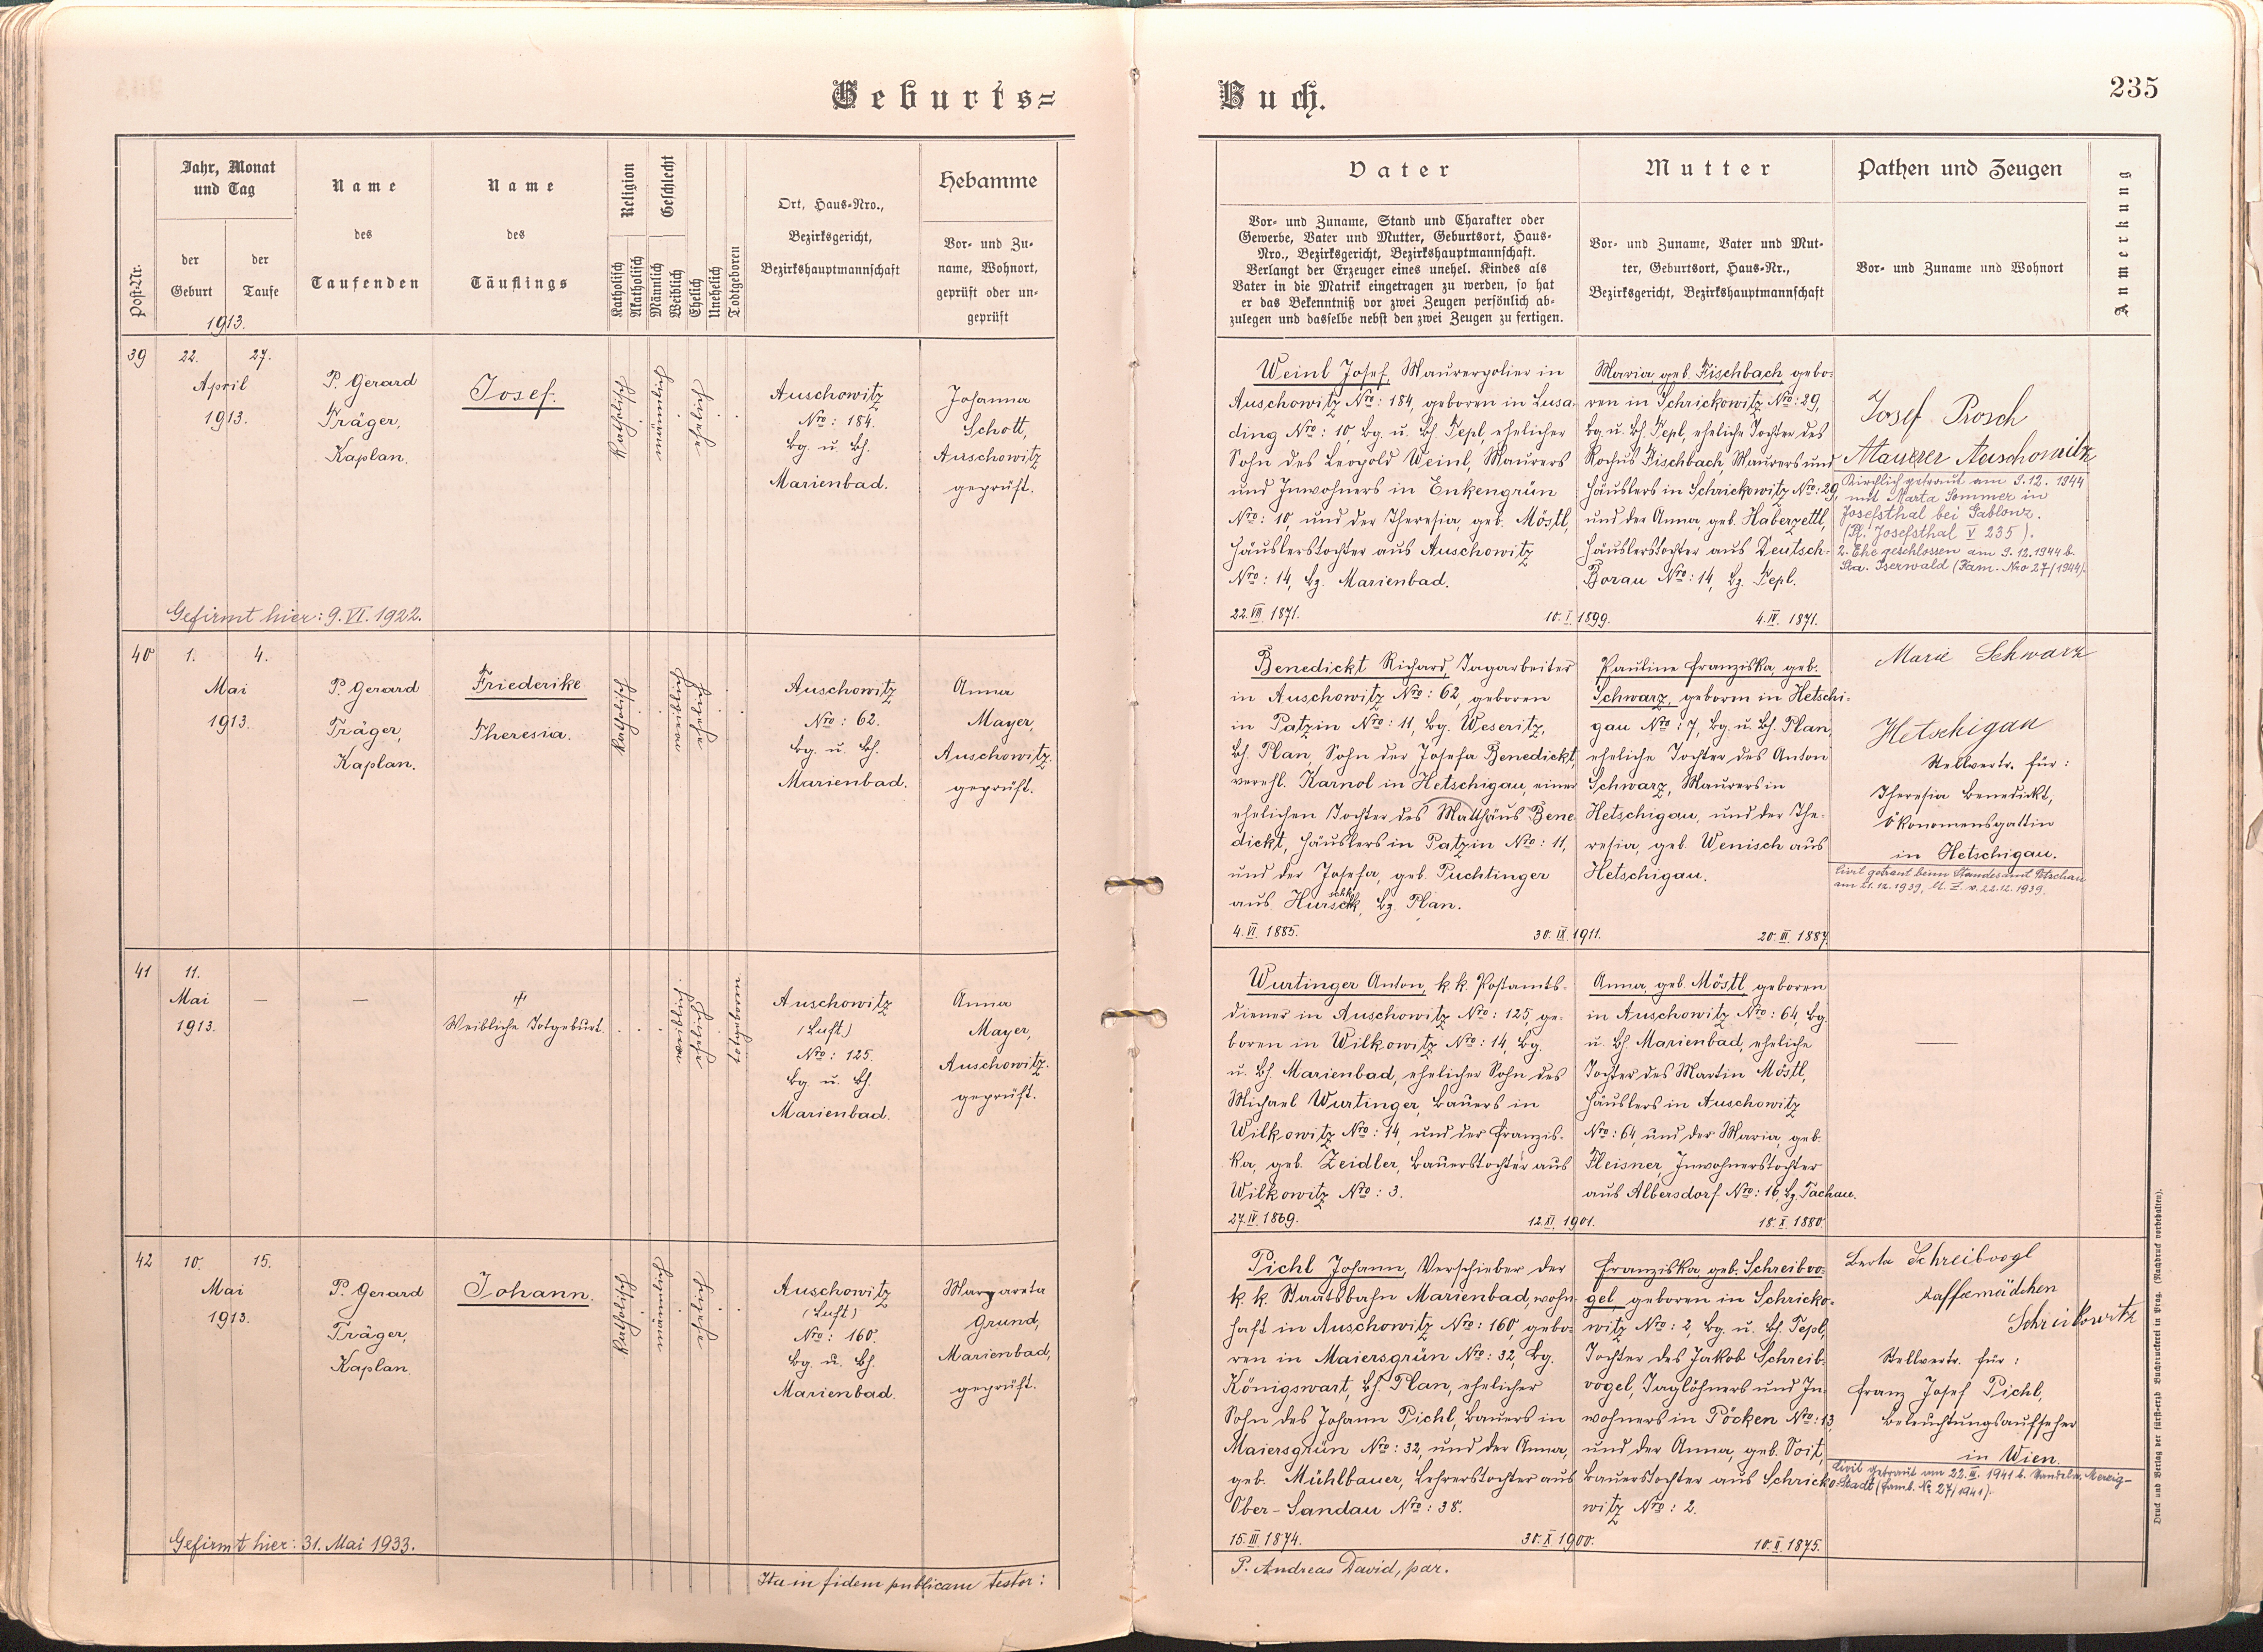 Geburts=
Buch.
235
Post-Nr.
Jahr, Monat
und Tag
der
Geburt
der
Taufe
1913.
Name
des
Taufenden
Name
des
Täuflings
Religion
Katholisch
Akatholisch
Geschlecht
Männlich
Weiblich
Ehelich
Unehelich
Todtgeboren
Ort, Haus-Nro.,
Bezirksgericht,
Bezirkshauptmannschaft
Hebamme
Vor- und Zu-
name, Wohnort,
geprüft oder un-
geprüft
Vater
Vor- und Zuname, Stand und Charakter oder
Gewerbe, Vater und Mutter, Geburtsort, Haus-
Nro., Bezirksgericht, Bezirkshauptmannschaft.
Verlangt der Erzeuger eines unehel. Kindes als
Vater in die Matrik eingetragen zu werden, so hat
er das Bekenntniß vor zwei Zeugen persönlich ab-
zulegen und dasselbe nebst den zwei Zeugen zu fertigen.
Mutter
Vor- und Zuname, Vater und Mut-
ter, Geburtsort, Haus-Nr.,
Bezirksgericht, Bezirkshauptmannschaft
Pathen und Zeugen
Vor- und Zuname und Wohnort
Anmerkung
39
22.
27.
April
1913.
P. Gerard
Träger,
Kaplan.
Josef.
Katholisch
männlich
ehelich
Auschowitz
Nro: 184.
bg. u. bh.
Marienbad.
Johanna
Schott,
Auschowitz
geprüft.
Gefirmt hier: 9. VI. 1922.
Weinl Josef, Maurerpolier in
Auschowitz Nro: 184, geboren in Lusa-
ding Nro: 10, bg. u. bh. Tepl, ehelicher
Sohn des Leopold Weinl, Maurers
und Inwohners in Enkengrün
Nro: 10, und der Theresia, geb. Möstl,
Häuslerstochter aus Auschowitz
Nro: 14, bz. Marienbad.
22. VII. 1871.
10. I. 1899.
Maria, geb. Fischbach, gebo-
ren in Schrickowitz Nro: 29,
bg. u. bh. Tepl, eheliche Tochter des
Rochus Fischbach, Maurers und
Häuslers in Schrickowitz Nro: 29,
und der Anna, geb. Haberzettl,
Häuslerstochter aus Deutsch-
Borau Nro: 14, bz. Tepl.
4. IV. 1871.
Josef Prosch
Maurer Auschowitz
Kirchlich getraut am 9.12. 1944
mit Marta Sommer in
Josefsthal bei Gablonz.
(Pf. Josefsthal V 235).
2. Ehe geschlossen am 9.12.1944 b.
Sta. Iserwald (Fam. Nro 27/1944).
40
1.
4.
Mai
1913.
P. Gerard
Träger,
Kaplan.
Friederike
Theresia.
Katholisch
weiblich
ehelich
Auschowitz
Nro: 62.
bg. u. bh.
Marienbad.
Anna
Mayer,
Auschowitz.
geprüft.
Benedickt Richard, Tagarbeiter
in Auschowitz Nro: 62, geboren
in Patzin Nro: 11, bg. Weseritz,
bh. Plan, Sohn der Josefa Benedickt,
verehl. Karnol in Hetschigau, einer
ehelichen Tochter des Matthäus Bene-
dickt, Häuslers in Patzin Nro: 11,
und der Josefa, geb. Puchtinger
aus Hurschk, bz. Plan.
4. VI. 1885.
30. IX. 1911.
Pauline Franziska, geb.
Schwarz, geboren in Hetschi-
gau Nro: 7, bg. u. bh. Plan,
eheliche Tochter des Anton
Schwarz, Maurers in
Hetschigau, und der The-
resia, geb. Wenisch aus
Hetschigau.
20. III. 1887.
Marie Schwarz
Hetschigau
Stellvertr. für:
Theresia Benedickt,
Ökonomensgattin
in Hetschigau.
Civil getraut beim Standesamt Petschau
am 21.12.1939, lt. Z. v. 22.12.1939.
41
11.
Mai
1913.
Weibliche Totgeburt.
weiblich
ehelich
totgeboren
Auschowitz
(Luft)
Nro: 125.
bg. u. bh.
Marienbad.
Anna
Mayer,
Auschowitz.
geprüft.
Wurtinger Anton, k.k. Postamts-
diener in Auschowitz Nro: 125, ge-
boren in Wilkowitz Nro: 14, bg.
u. bh. Marienbad, ehelicher Sohn des
Michael Wurtinger, Bauers in
Wilkowitz Nro: 14, und der Franzis-
ka, geb. Zeidler, Bauerstochter aus
Wilkowitz Nro: 3.
27. IV. 1869.
12. XI. 1901.
Anna, geb. Möstl, geboren
in Auschowitz Nro: 64, bg.
u. bh. Marienbad, eheliche
Tochter des Martin Möstl,
Häuslers in Auschowitz
Nro: 64, und der Maria, geb.
Fleisner, Inwohnerstochter
aus Albersdorf Nro: 16, bz. Tachau.
18. X. 1880.
42
10.
15.
Mai
1913.
P. Gerard
Träger,
Kaplan.
Johann.
Katholisch
männlich
ehelich
Auschowitz
(Luft)
Nro: 160.
bg. u. bh.
Marienbad.
Margareta
Grund,
Marienbad,
geprüft.
Gefirmt hier: 31. Mai 1933.
Pichl Johann, Verschieber der
k. k. Staatsbahn Marienbad, wohn-
haft in Auschowitz Nro: 160, gebo-
ren in Maiersgrün Nro: 32, bg.
Königswart, bh. Plan, ehelicher
Sohn des Johann Pichl, Bauers in
Maiersgrün Nro: 32, und der Anna,
geb. Mühlbauer, Lehrerstochter aus
Ober-Sandau Nro: 38.
15. III. 1874.
30. X. 1900.
Franziska, geb. Schreibvo-
gel, geboren in Schricko-
witz Nro: 2, bg. u. bh. Tepl,
Tochter des Jakob Schreib-
vogel, Taglöhners und In-
wohners in Pöcken Nro: 13,
und der Anna, geb. Soit,
Bauerstochter aus Schricko-
witz Nro: 2.
10. II. 1875.
Berta Schreibvogl
Kaffeemädchen
Schrikowitz
Stellvertr. für:
Franz Josef Pichl,
Beleuchtungsaufseher
in Wien.
Civil getraut am 22. III. 1941 b. Standesa. Merzig-
Stadt (Famb. No 27/1941).
Ita in fidem publicam testor:
P. Andreas David, par.
Druck und Verlag der fürst-erzb. Buchdruckerei in Prag. (Nachdruck vorbehalten).